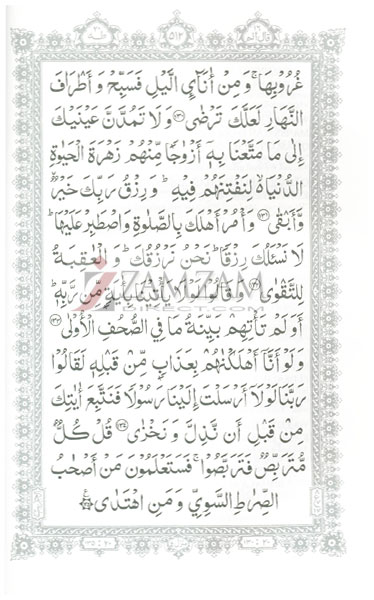 قال الم
طٰهٰ
غُرُوْبِهَا ۚ وَمِنْ اٰنَآئِ الَّيْلِ فَسَبِّحْ وَ اَطْرَافَ
النَّهَارِ لَعَلَّكَ تَرْضٰى ﴿۱۳۰﴾ وَ لَا تَمُدَّنَّ عَيْنَيْكَ
اِلٰى مَا مَتَّعْنَا بِهٖٓ اَزْوَاجًا مِّنْهُمْ زَهْرَةَ الْحَيٰوةِ
الدُّنْيَا ۙ لِنَفْتِنَهُمْ فِيْهِ ؕ وَ رِزْقُ رَبِّكَ خَيْرٌ
وَّ اَبْقٰى ﴿۱۳۱﴾ وَاْمُرْ اَهْلَكَ بِالصَّلٰوةِ وَ اصْطَبِرْ عَلَيْهَا ؕ
لَا نَسْـَٔلُكَ رِزْقًا ؕ نَحْنُ نَرْزُقُكَ ؕ وَ الْعَاقِبَةُ
لِلتَّقْوٰى ﴿۱۳۲﴾ وَ قَالُوْا لَوْ لَا يَاْتِيْنَا بِاٰيَةٍ مِّنْ رَّبِّهٖ ؕ
اَوَ لَمْ تَاْتِهِمْ بَيِّنَةُ مَا فِي الصُّحُفِ الْاُوْلٰى ﴿۱۳۳﴾
وَ لَوْ اَنَّآ اَهْلَكْنٰهُمْ بِعَذَابٍ مِّنْ قَبْلِهٖ لَقَالُوْا
رَبَّنَا لَوْ لَآ اَرْسَلْتَ اِلَيْنَا رَسُوْلًا فَنَتَّبِعَ اٰيٰتِكَ
مِنْ قَبْلِ اَنْ نَّذِلَّ وَ نَخْزٰى ﴿۱۳۴﴾ قُلْ كُلٌّ
مُّتَرَبِّصٌ فَتَرَبَّصُوْا ۚ فَسَتَعْلَمُوْنَ مَنْ اَصْحٰبُ
الصِّرَاطِ السَّوِيِّ وَ مَنِ اهْتَدٰى ﴿۱۳۵﴾
ZAMZAM
DIRECT.COM